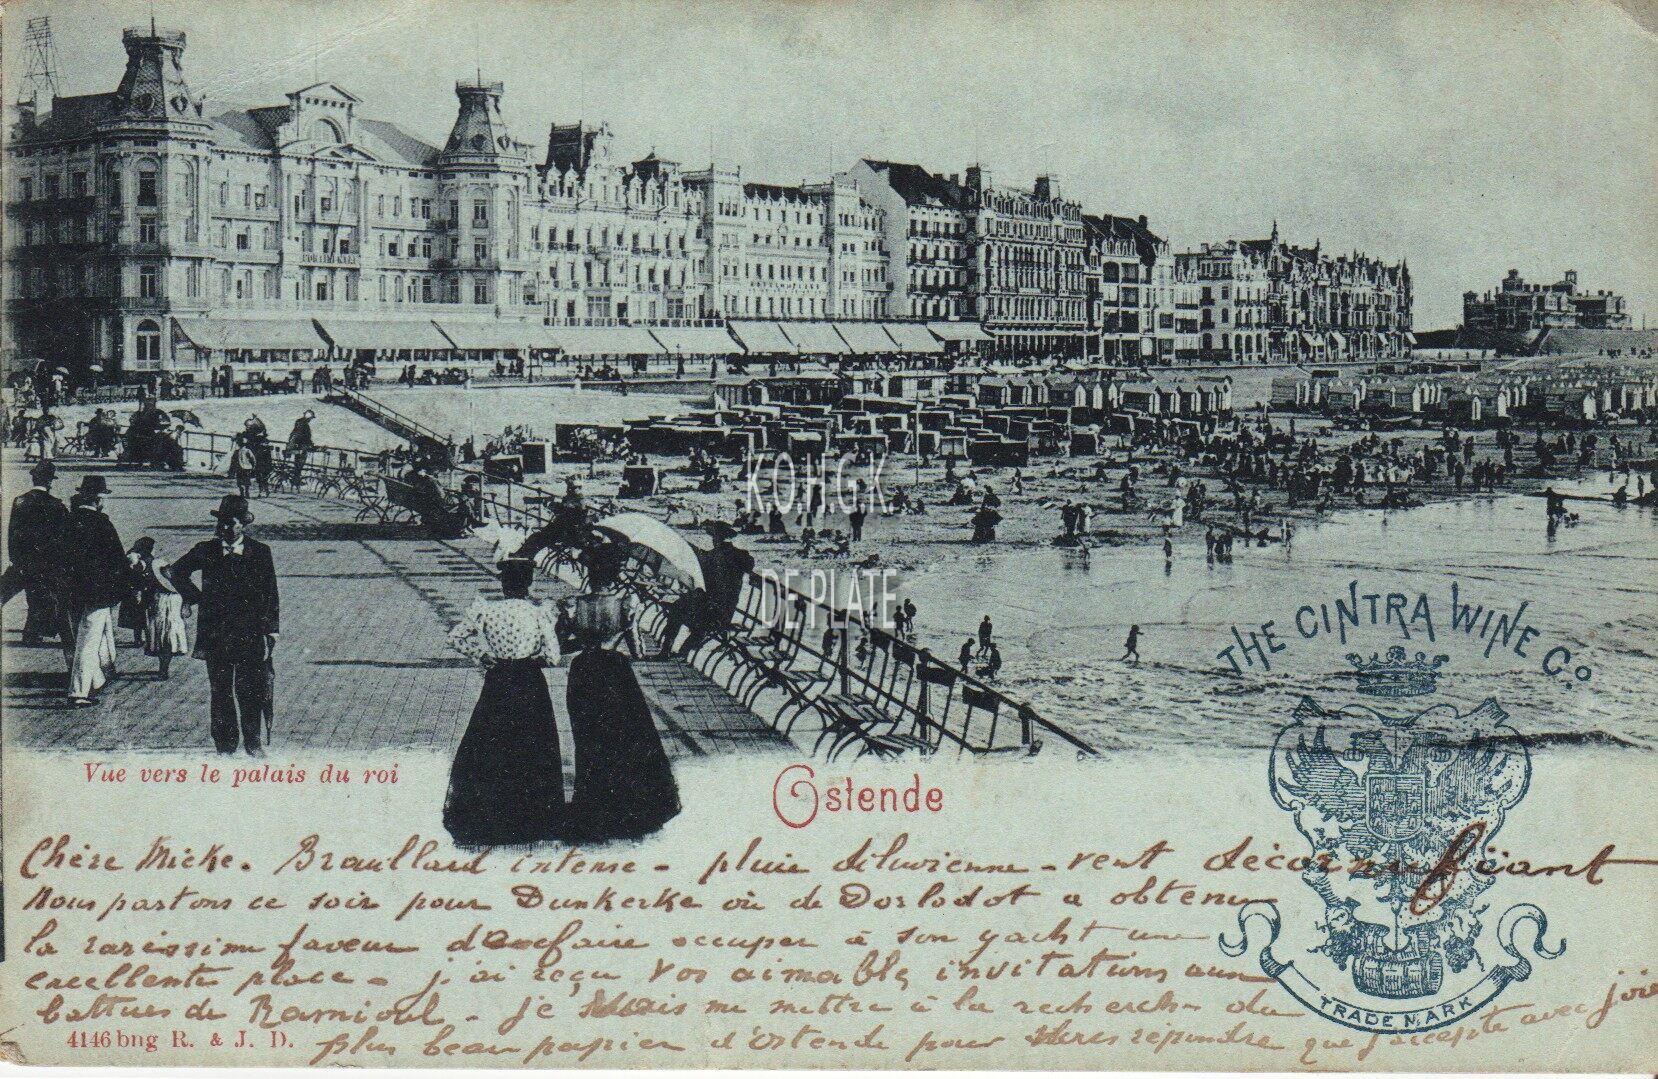 CONTINENTAL
K.O.H.G.K.
DE PLATE
THE CINTRA WINE Co.
Vue vers le palais du roi
Ostende
Chère Micke. Brouillard intense - pluie diluvienne - vent décornifïant
Nous partons ce soir pour Dunkerke où de Dorlodot a obtenu
la rarissime faveur de faire occuper à son yacht une
excellente place - j'ai reçu vos aimables invitations aux
battues de Ramioul - je vais me mettre à la recherche du
plus beau papier d'Ostende pour vous répondre que j'accepte avec joie
TRADE MARK
4146 bng R. & J. D.